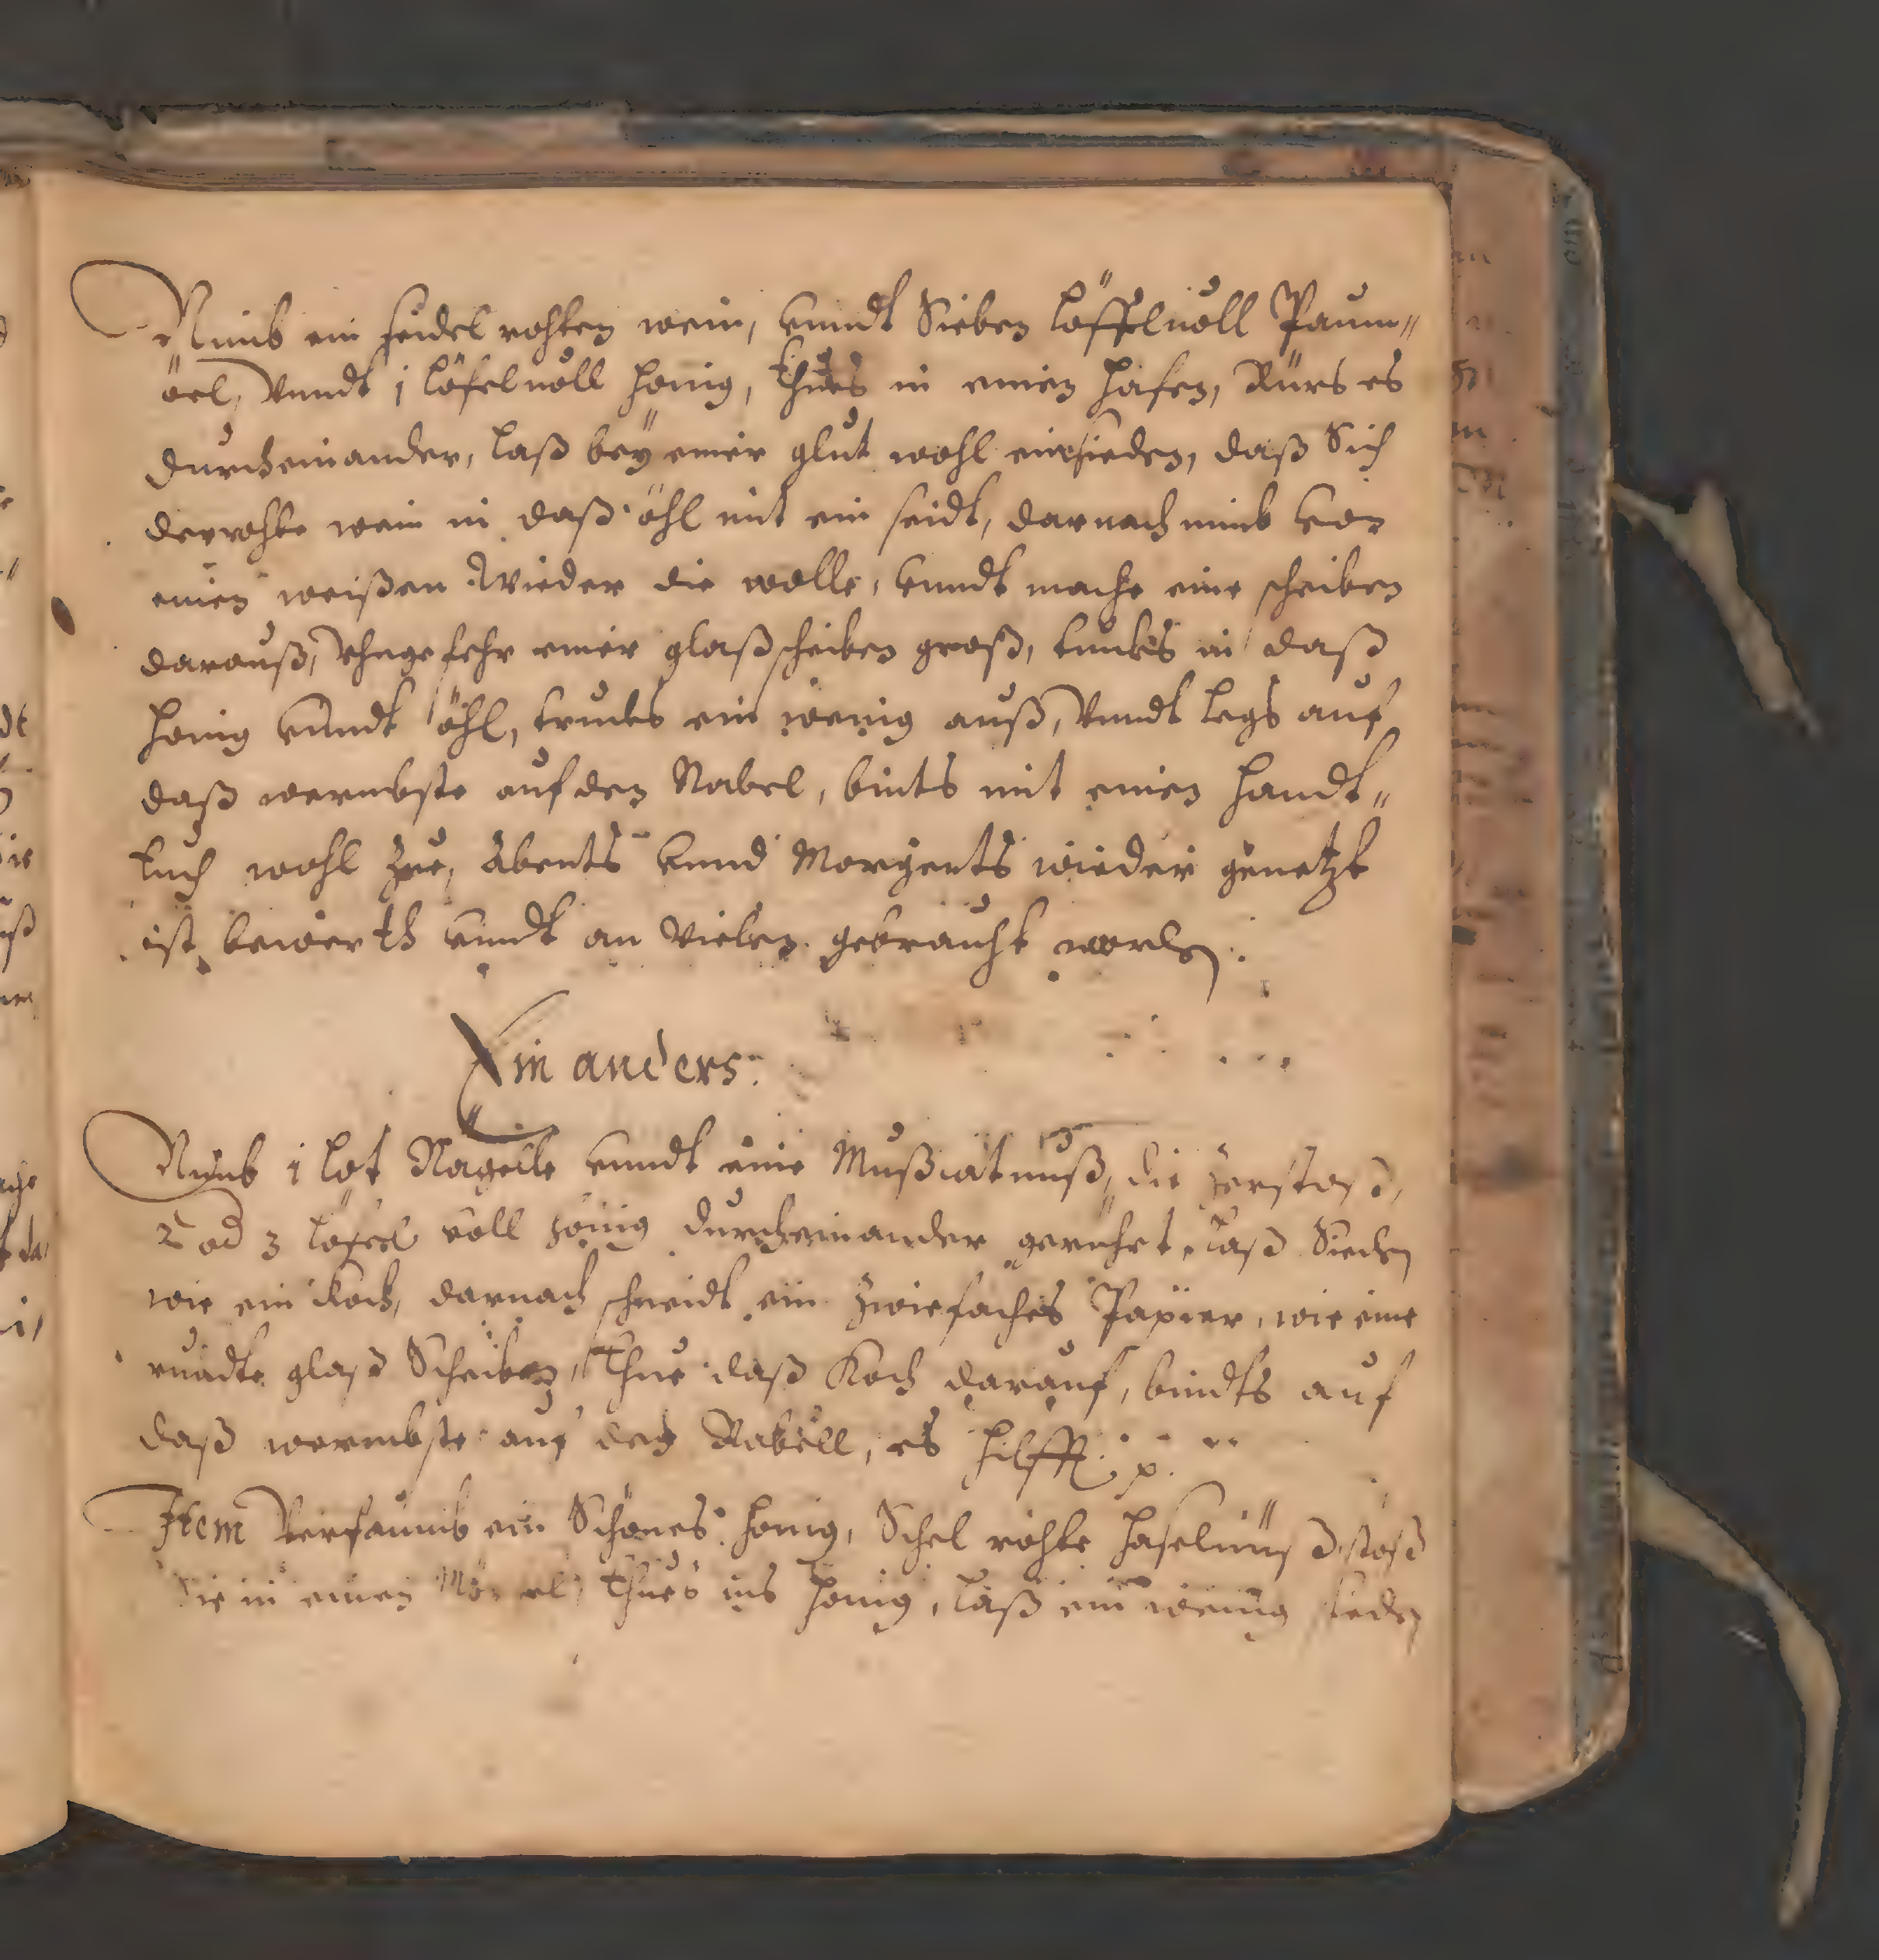 Nimb ein seidel rohten wein, vnndt Sieben löffel voll Paum„
öel, Vnndt 1 löfel voll honig, thues in einen hafen, Rürs es
durcheinander, laß beÿ einer glut wohl einsieden, daß Sich
der rohte wein in daß öhl mit ein seidt, darnach nimb von
einen weißen Wieder die wolle, vnndt mache eine scheiben
darauß, Vhngefehr einer glaßscheiben groß, tunks in daß
honig vnndt öhl, truks ein wenig auß, Vnndt legs auf
daß wermbste auf den Nabel, bints mit einen handt„
tuch wohl zue, Abents vnnd Morgents wieder genetzt
ist bewerth vnndt an Vielen gebraucht worden.
Ein anders:
Nimb 1 lot Nagelle vnndt eine Mußcatnuß, die zerstoß,
2 od 3 löfel voll hönig durcheinander gerührt, laß Sieden
wie ein Koch, darnach schneidt ein zwiefaches Papier, wie eine
rundte glaß Scheiben, Thue daß Koch darauf, bindts auf
daß wermbste auf den Nabell, es hilfft. p.
Item Verfaumb ein Schönes honig, Schel rohte haselnüß, stoß
Sie in einen thues ins honig, laß ein wenig sieden